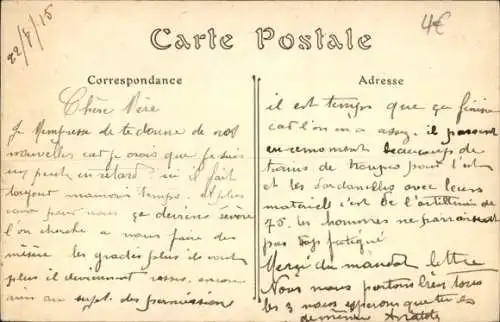 22/8/15
4€
Carte Postale
Correspondance
Adresse
Chère Mère
Je m'empresse de te donne de nos
nouvelles car je crois que je suis
un peut en retard ici il fait
toujour mauvais temps et plus
pour nous ça deviens severe
l'on cherche a nous faire des
misère les gradés plus ils vont
plus il deviennent rosses encore
rien au sujet des permission
il est temps que ça finisse
car l'on en a assez. il passent
en ce moment beaucoup de
trains de troupes pour l'est
et les Dardanelles avec leurs
materiels c'est de l'artillerie de
75. les hommes ne parraissent
pas trop fatigué
Merçi du mandat lettre
Nous nous portons bien tous
les 3 nous esperons que tu es
de même